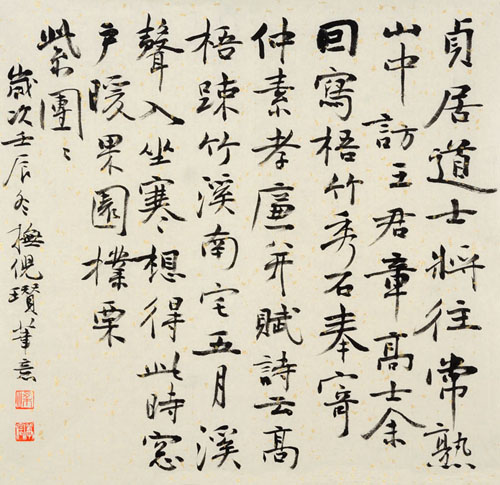 貞居道士將往常熟
山中訪王君章高士余
回寫梧竹秀石奉寄
仲素孝廉并賦詩云高
梧踈竹溪南宅五月溪
聲入坐寒想得此時窓
戶暖果園樸栗
紫團〻
歲次壬辰冬撫倪瓚筆意